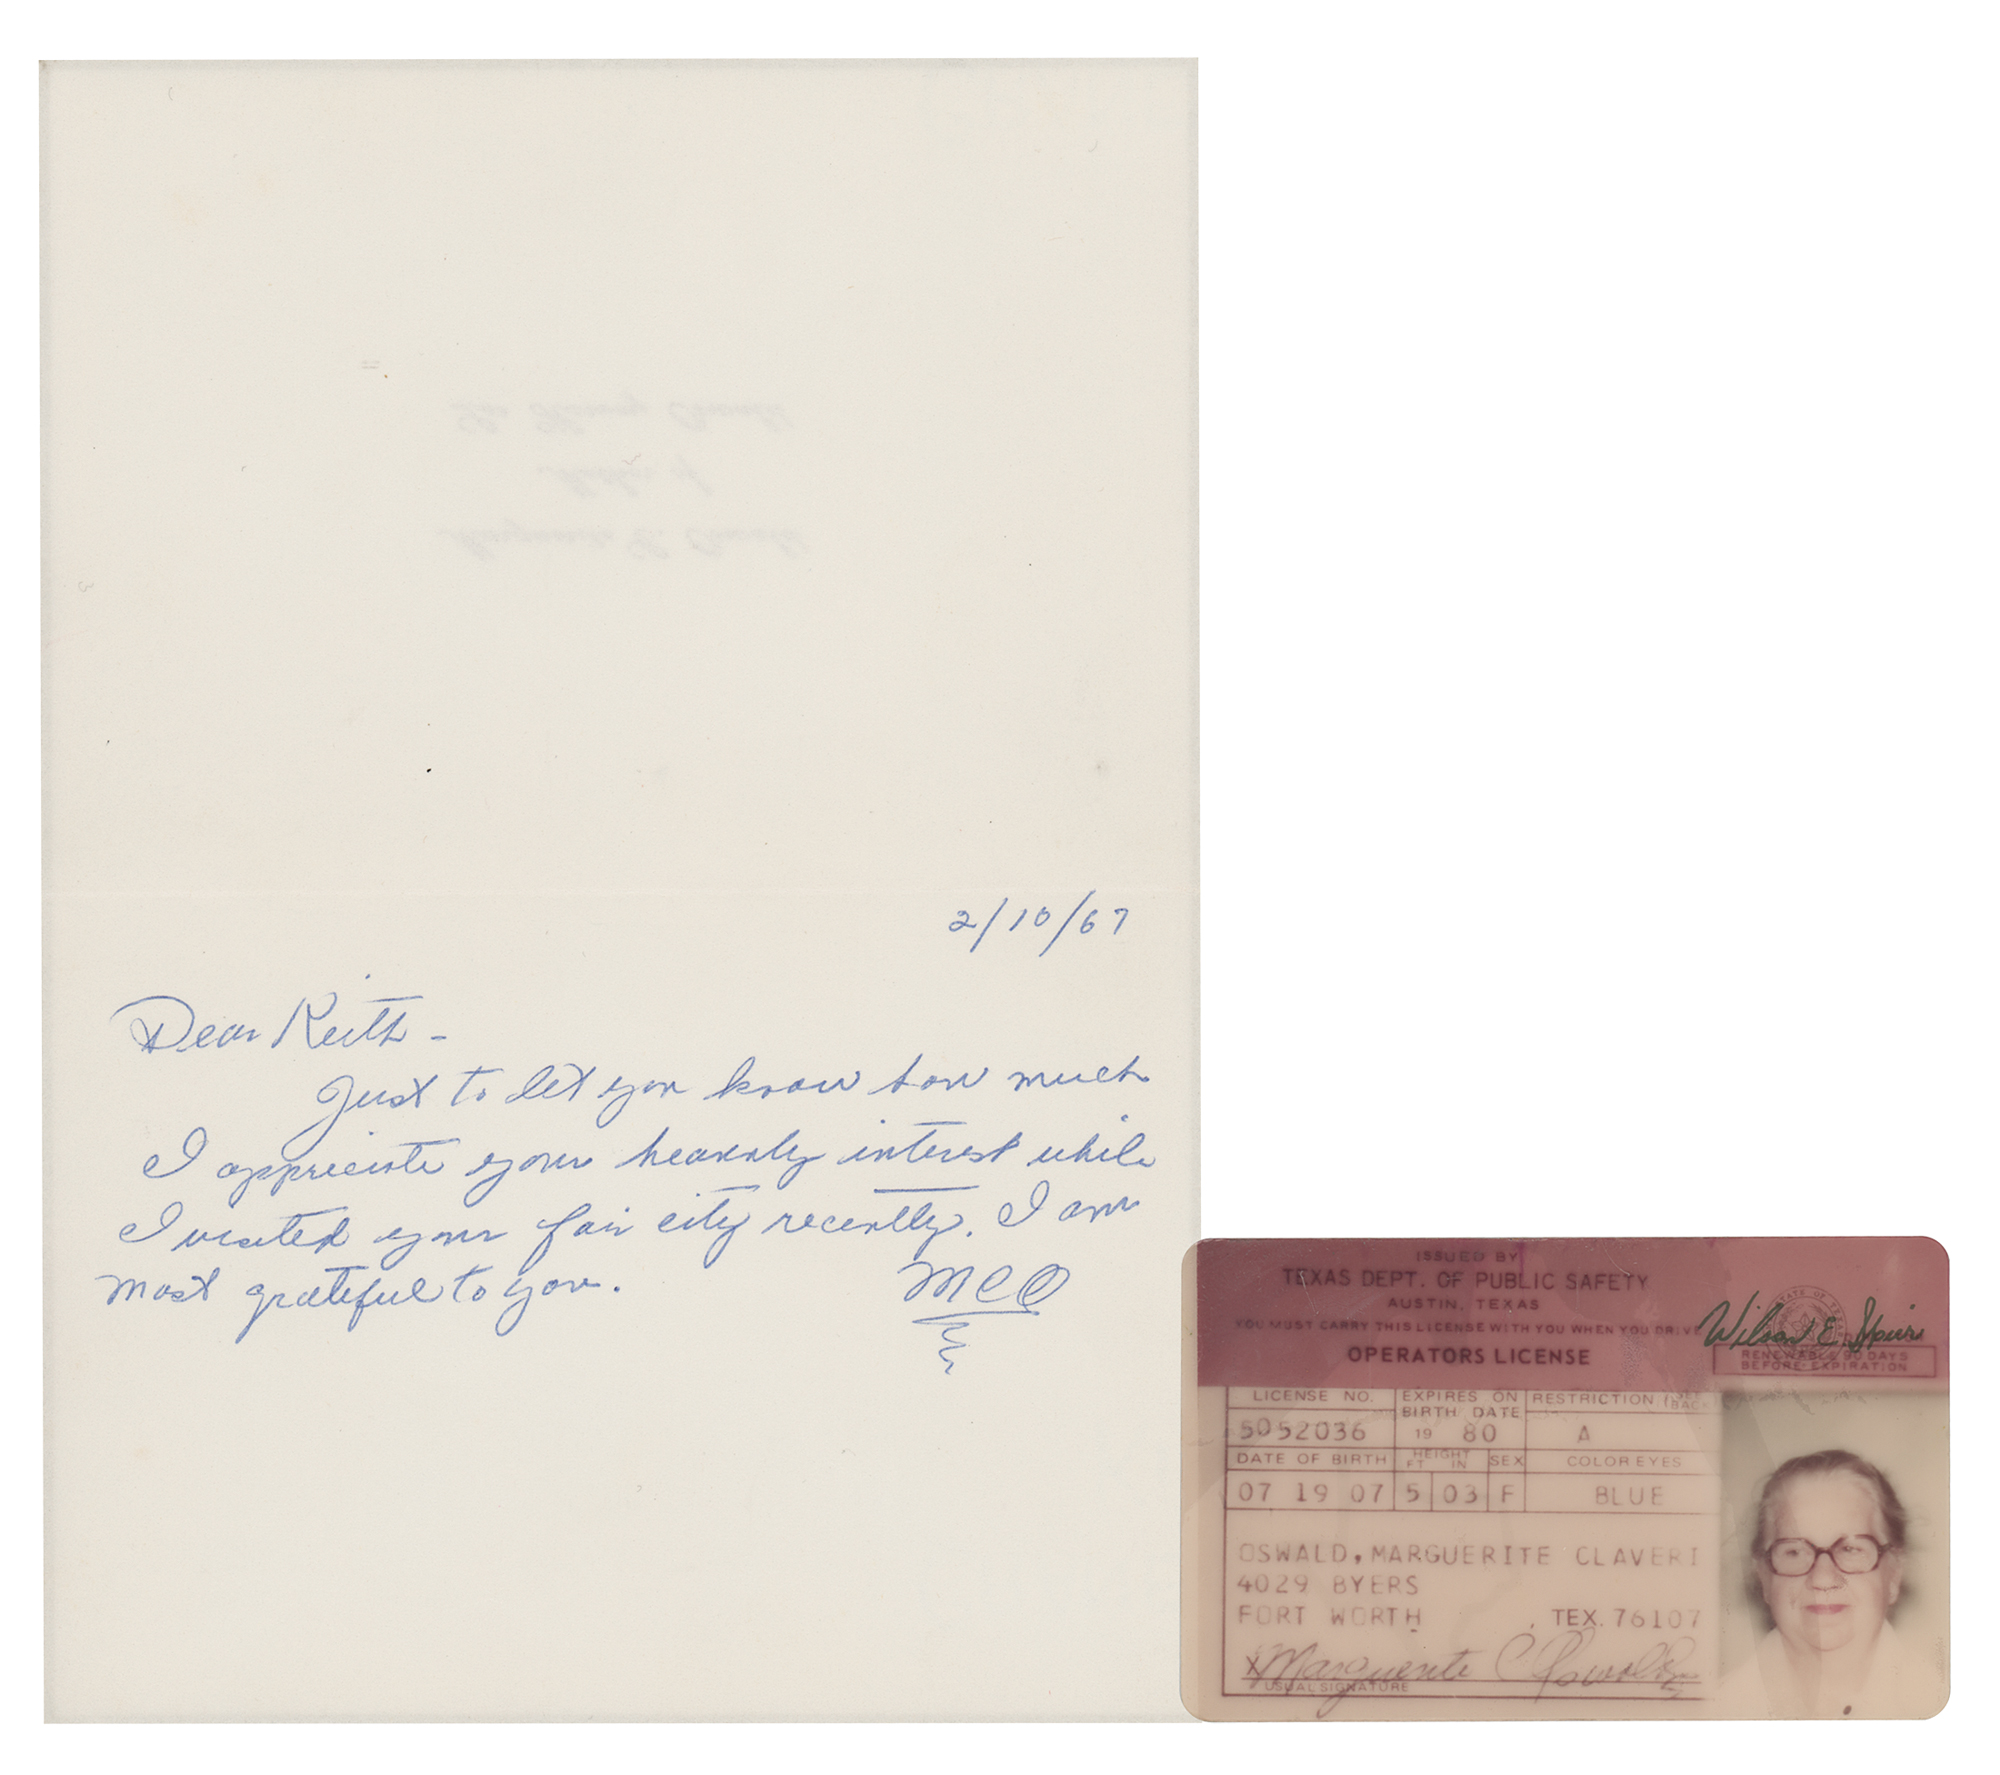 2/10/67
Dear Keith -
Just to let you know how much
I appreciate your heavenly interest while
I visited your fair city recently. I am
most grateful to you. MCO
ISSUED BY
TEXAS DEPT. OF PUBLIC SAFETY
AUSTIN, TEXAS
YOU MUST CARRY THIS LICENSE WITH YOU WHEN YOU DRIVE
Wilson E. Speir
OPERATORS LICENSE
RENEWABLE 90 DAYS
BEFORE EXPIRATION
LICENSE NO. EXPIRES ON BIRTH DATE RESTRICTION (SEE BACK
5052036 19 80 A
DATE OF BIRTH HEIGHT FT IN SEX COLOR EYES
07 19 07 5 03 F BLUE
OSWALD, MARGUERITE CLAVERI
4029 BYERS
FORT WORTH , TEX. 76107
X Marguerite C Oswald
USUAL SIGNATURE